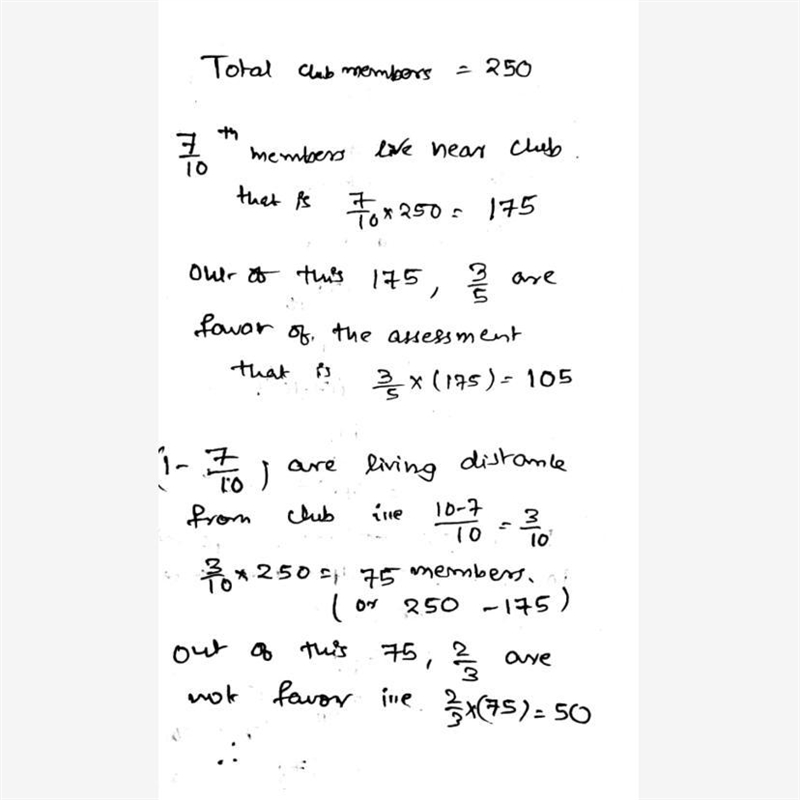 Total club members = 250
7/10 th members live near club.
that is 7/10 × 250 = 175
out of this 175, 3/5 are
favor of. the assessment
that is 3/5 × (175) = 105
(1 - 7/10) are living distance
from club i.e 10-7/10 = 3/10
3/10 × 250 = 75 members.
(or 250 - 175)
out of this 75, 2/3 are
not favor i.e. 2/3 × (75) = 50
∴